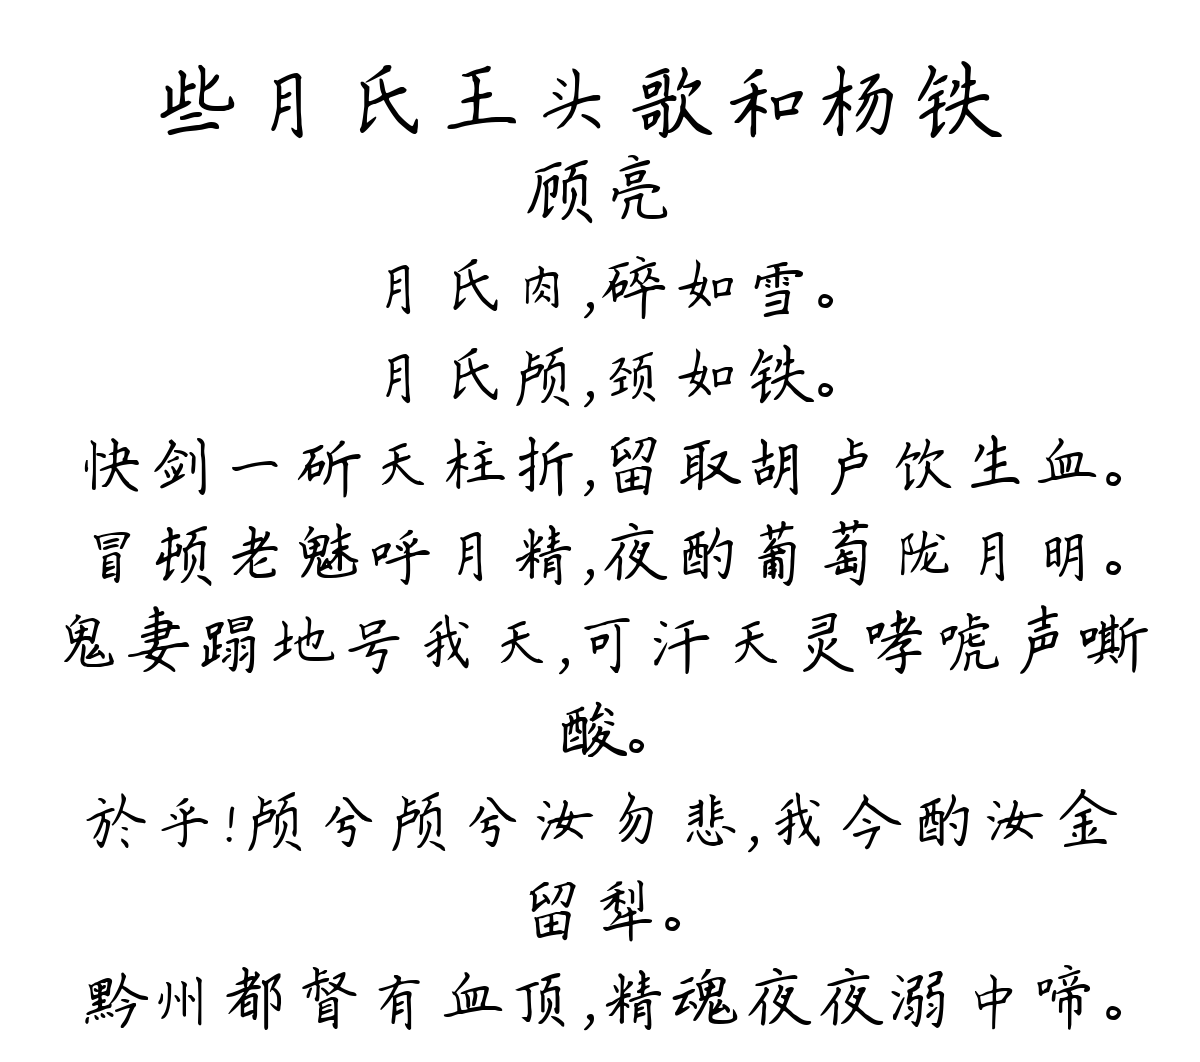 些月氏王头歌和杨铁
顾亮
月氏肉,碎如雪。
月氏颅,颈如铁。
快剑一斫天柱折,留取胡卢饮生血。
冒顿老魅呼月精,夜酌葡萄陇月明。
鬼妻蹋地号我天,可汗天灵哮唬声嘶
酸。
於乎!颅兮颅兮汝勿悲,我今酌汝金
留犁。
黔州都督有血顶,精魂夜夜溺中啼。